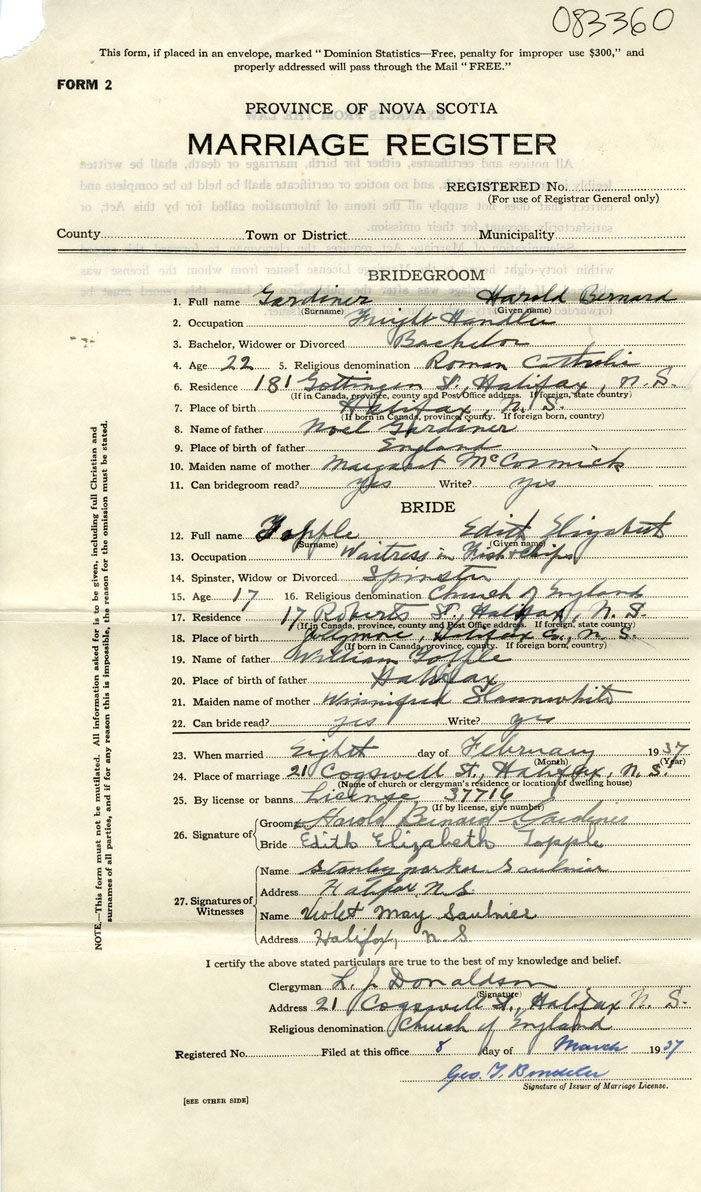 083360
This form, if placed in an envelope, marked "Dominion Statistics—Free, penalty for improper use $300," and
properly addressed will pass through the Mail "FREE."
FORM 2
PROVINCE OF NOVA SCOTIA
MARRIAGE REGISTER
REGISTERED No.
(For use of Registrar General only)
County Town or District Municipality
BRIDEGROOM
1. Full name Gardiner Harold Bernard
(Surname) (Given name)
2. Occupation Freight Handler
3. Bachelor, Widower or Divorced Bachelor
4. Age 22 5. Religious denomination Roman Catholic
6. Residence 181 Gottingen St., Halifax, N.S.
(If in Canada, province, county and Post Office address. If foreign, state country)
7. Place of birth Halifax, N.S.
(If born in Canada, province, county. If foreign born, country)
8. Name of father Noel Gardiner
9. Place of birth of father England
10. Maiden name of mother Margaret McCormick
11. Can bridegroom read? yes Write? yes
BRIDE
12. Full name Topple Edith Elizabeth
(Surname) (Given name)
13. Occupation Waitress in Fish & Chips
14. Spinster, Widow or Divorced Spinster
15. Age 17 16. Religious denomination Church of England
17. Residence 17 Roberts St., Halifax, N.S.
(If in Canada, province, county and Post Office address. If foreign, state country)
18. Place of birth Jollymore, Halifax Co., N.S.
(If born in Canada, province, county. If foreign born, country)
19. Name of father William Topple
20. Place of birth of father Halifax
21. Maiden name of mother Winnifred Slaunwhite
22. Can bride read? yes Write? yes
23. When married Eight day of February 1937
(Month) (Year)
24. Place of marriage 21 Cogswell St., Halifax, N.S.
(Name of church or clergyman's residence or location of dwelling house)
25. By license or banns License 37716
(If by license, give number)
26. Signature of Groom Harold Bernard Gardiner
Bride Edith Elizabeth Topple
27. Signatures of Witnesses
Name Stanley parker Saulnier
Address Halifax N.S
Name Violet May Saulnier
Address Halifax, N.S
I certify the above stated particulars are true to the best of my knowledge and belief.
Clergyman L. J. Donaldson
(Signature)
Address 21 Cogswell St., Halifax N.S.
Religious denomination Church of England
Registered No. Filed at this office 8 day of March 1937
Geo. T.
Signature of Issuer of Marriage License.
[SEE OTHER SIDE]
NOTE.—This form must not be mutilated. All information asked for is to be given, including full Christian and
surnames of all parties, and if for any reason this is impossible, the reason for the omission must be stated.